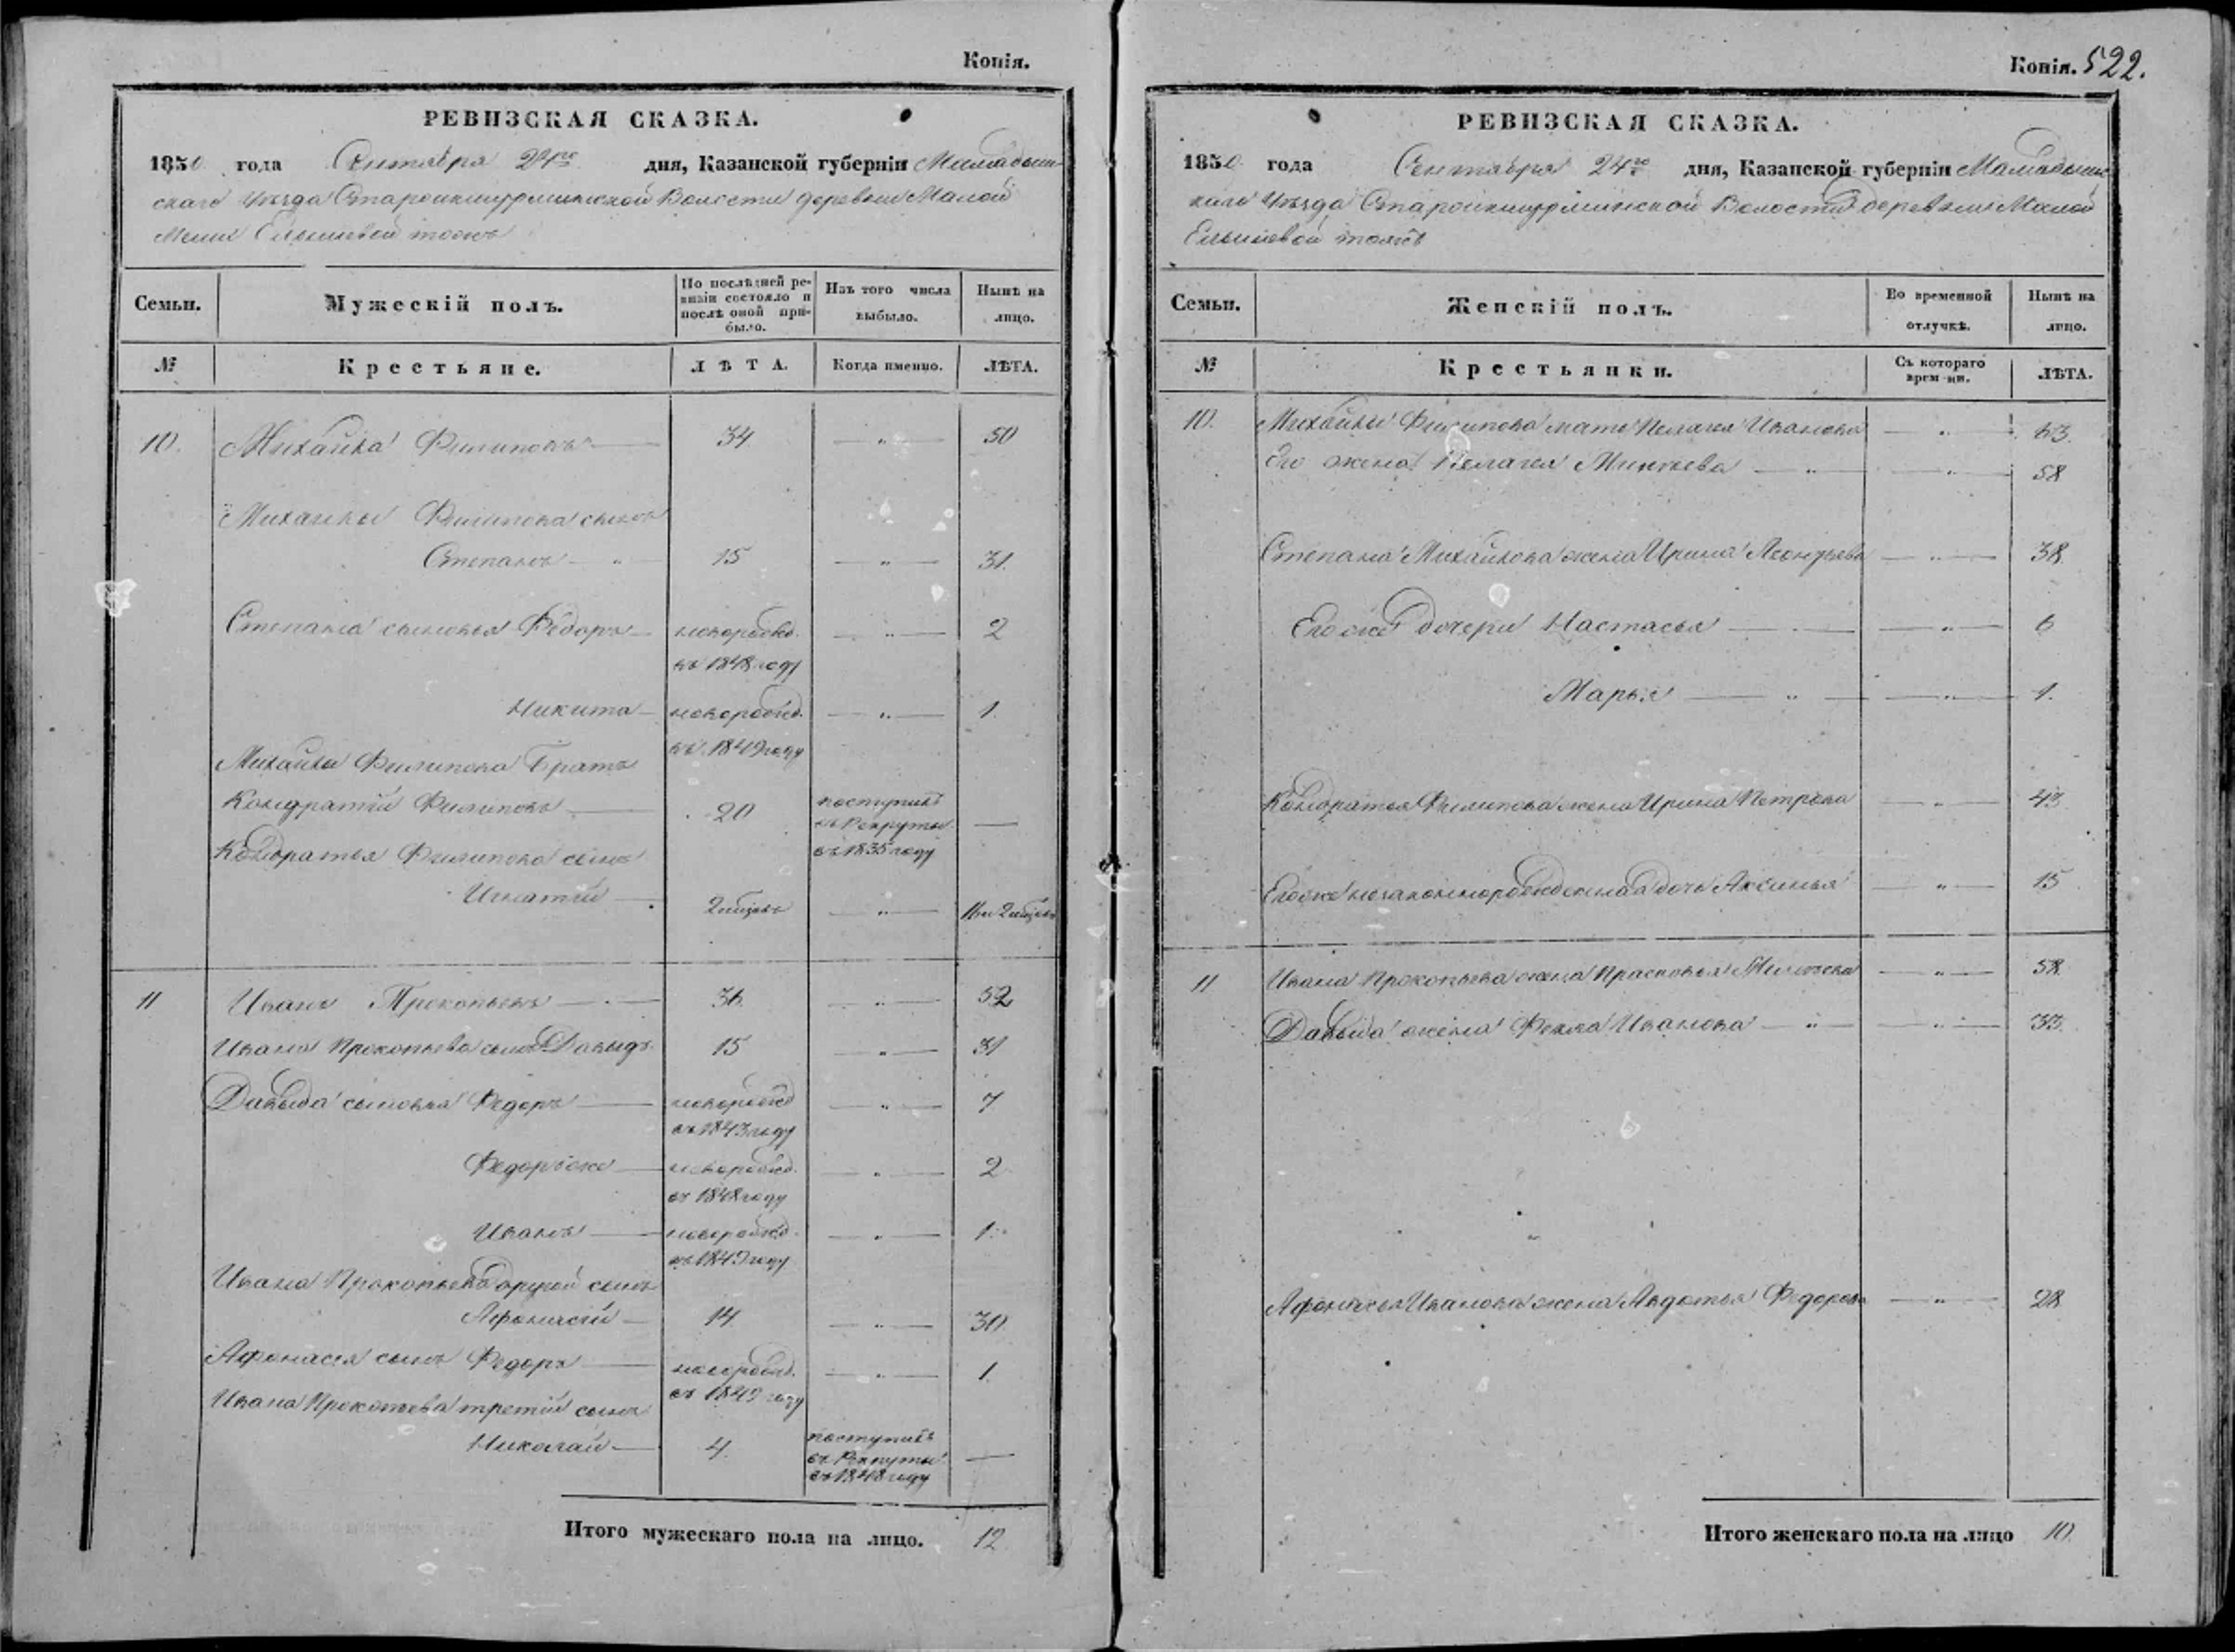 Копія.
РЕВИЗСКАЯ СКАЗКА.
1850 года Сентября 24го дня, Казанской губерніи Мамадыш-
скаго Уѣзда Волости деревни Малой
Меши Ельшевой тожъ
Семьи.
Мужескій полъ.
По послѣдней ре-
визіи состояло и
послѣ оной при-
было.
Изъ того числа
выбыло.
Нынѣ на
лицо.
№
Крестьяне.
ЛѢТА.
Когда именно.
ЛѢТА.
10. Михайла Филиповъ 34 50
Михайлы Филипова сынъ
Степанъ 15 31.
Степана сыновья Федоръ новорожд. 2
въ 1848 году
Никита новорожд. 1.
въ 1849 году
Михайлы Филипова Братъ
Кондратій Филиповъ 20 поступилъ
въ Рекруты
въ 1835 году
Кондратья Филипова сынъ
Игнатій 2 мѣсяцъ
11 Иванъ Прокопьевъ 36 52
Ивана Прокопьева сынъ Давыдъ 15 31
Давыда сыновья Федоръ новорожд 7
въ 1843 году
Федоръ же новорожд. 2
въ 1848 году
Иванъ новорожд. 1.
въ 1849 году
Ивана Прокопьева другой сынъ
Афонасій 14 30.
Афонасья сынъ Федоръ новорожд. 1.
въ 1849 году
Ивана Прокопьева третій сынъ
Николай 4. поступилъ
въ Рекруты
въ 1848 году
Итого мужескаго пола на лицо. 12
Копія. 522.
РЕВИЗСКАЯ СКАЗКА.
1850 года Сентября 24го дня, Казанской губерніи Мамадыш-
скаго Уѣзда Волости деревни Малой
Ельшевой тожъ
Семьи.
Женскій полъ.
Во временной
отлучкѣ.
Нынѣ на
лицо.
№
Крестьянки.
Съ котораго
врем-ни.
ЛѢТА.
10. Михайлы Филипова мать Пелагея Иванова
Его жена Пелагея 58
Степана Михайлова жена Ирина Леонтьева 38
Его же дочери Настасья 6
Марья 1.
Кондратья Филипова жена Ирина Петрова 43
Его же незаконнорожденная дочь Аксинья 15
11 Ивана Прокопьева жена Прасковья 58
Давыда жена Фекла Иванова 33
Афонасья Иванова жена Авдотья Федорова 28
Итого женскаго пола на лицо 10.